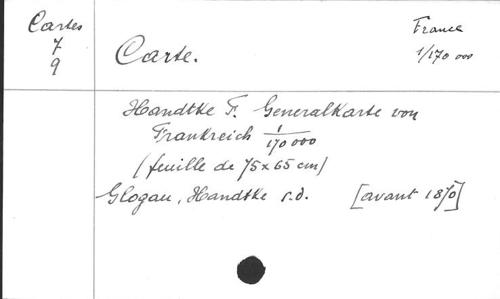 Cartes
7
9
Carte.
France
1/170 000
Handtke F. Generalkarte von
Frankreich 1/170 000
(feuille de 75 x 65 cm)
Glogau, Handtke s.d. [avant 1870]